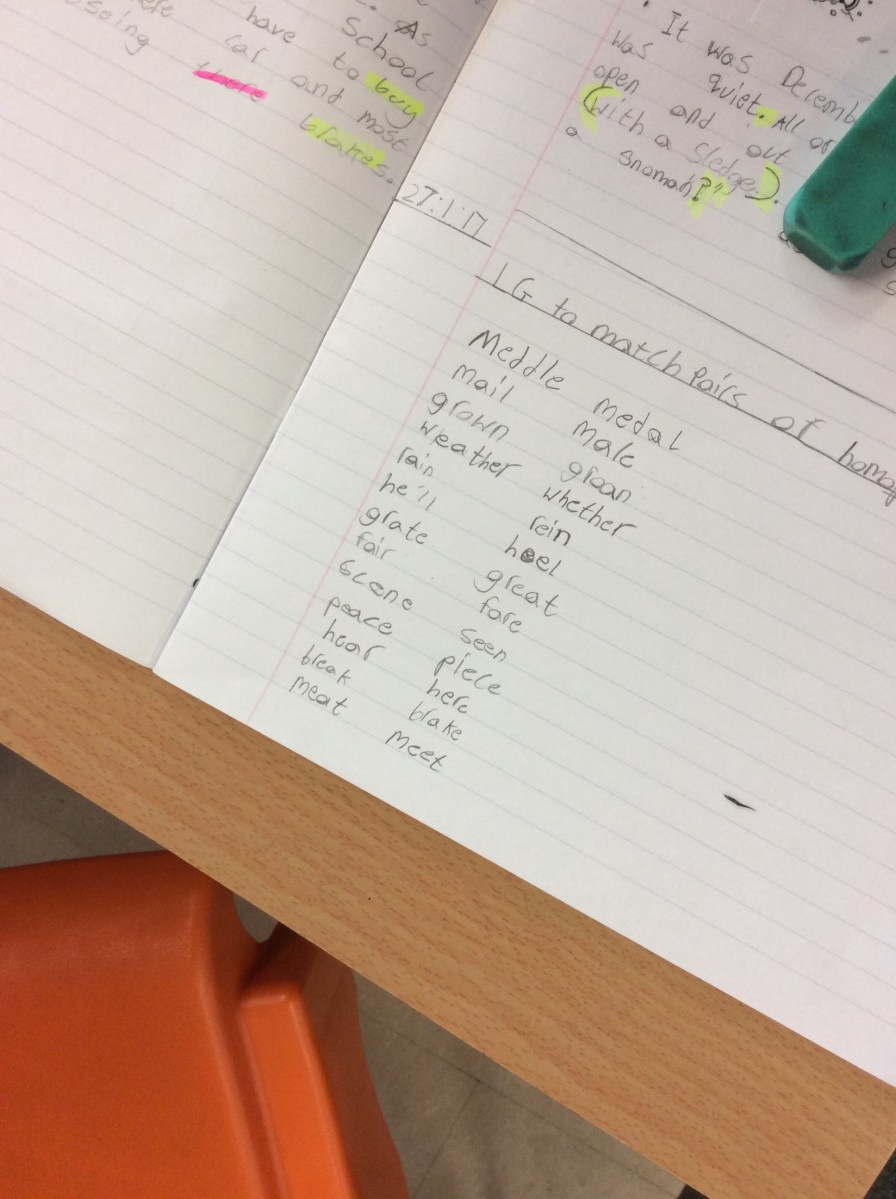 As
School
have to buy
car and most
there brakes.
It was
was quiet. All of
open and out
(with a sledge).
a snoman?"
27:1:17
LG to match Pairs of
Meddle medal
mail male
grown groan
weather whether
rain rein
he'll heel
grate great
fair fare
scene seen
peace piece
hear here
break brake
meat meet